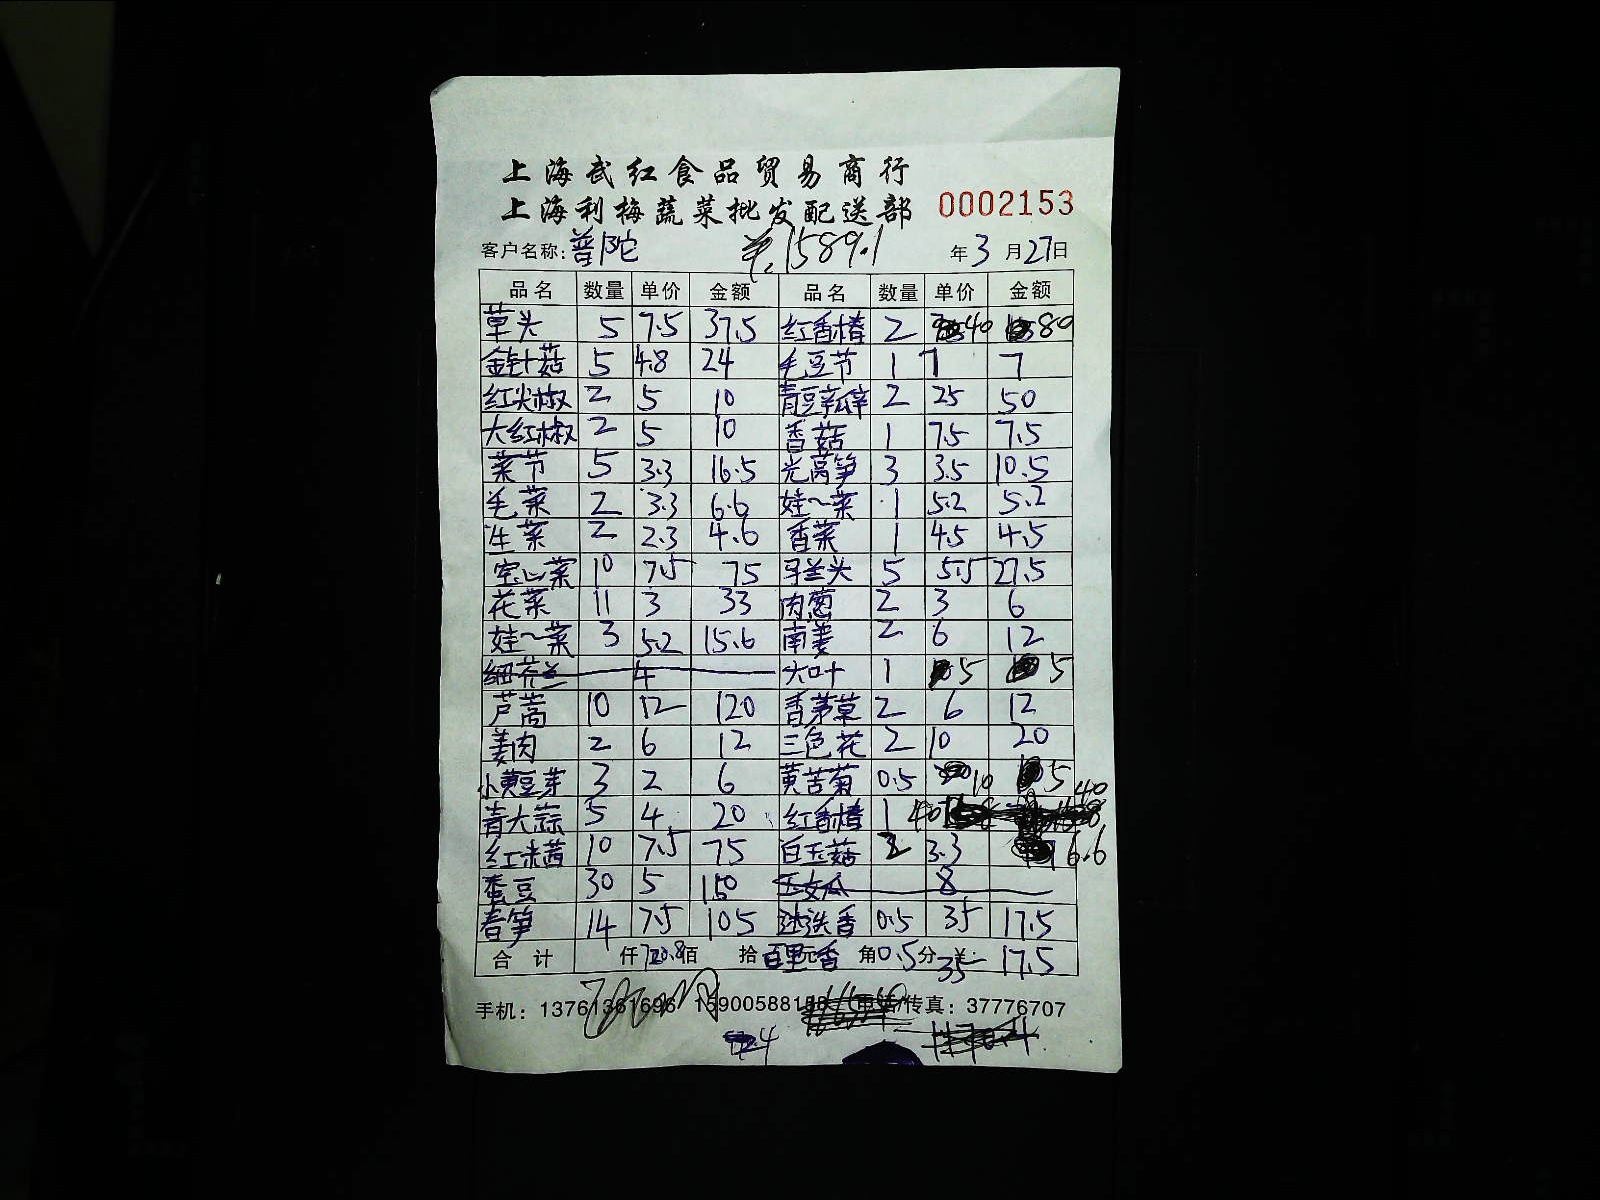 上海武红食品贸易商行
上海利梅蔬菜批发配送部 0002153
客户名称:普陀 ¥1589.1 年3月27日
品名 数量 单价 金额 品名 数量 单价 金额
草头 5 7.5 37.5 红香椿 2 40 80
金针菇 5 4.8 24 毛豆节 1 7 7
红尖椒 2 5 10 青豆辛瓣 2 25 50
大红椒 2 5 10 香菇 1 7.5 7.5
菜节 5 3.3 16.5 光莴笋 3 3.5 10.5
毛菜 2 3.3 6.6 娃~菜 1 5.2 5.2
生菜 2 2.3 4.6 香菜 1 4.5 4.5
空心菜 10 7.5 75 马兰头 5 5.5 27.5
花菜 11 3 33 肉葱 2 3 6
娃~菜 3 5.2 15.6 南姜 2 6 12
细芥兰 4 大叶 1 5 5
芦蒿 10 12 120 香茅草 2 6 12
姜肉 2 6 12 三色花 2 10 20
小黄豆芽 3 2 6 黄苦菊 0.5 10 5
青大蒜 5 4 20 红香椿 1 40 40
红米苋 10 7.5 75 白玉菇 2 3.3 6.6
蚕豆 30 5 150 玉女瓜 8
春笋 14 7.5 105 迷迭香 0.5 35 17.5
合计 仟720.8佰 拾 百里香 元 角0.5分 ¥: 35 17.5
手机: 13761361696 15900588188 电话/传真: 37776707